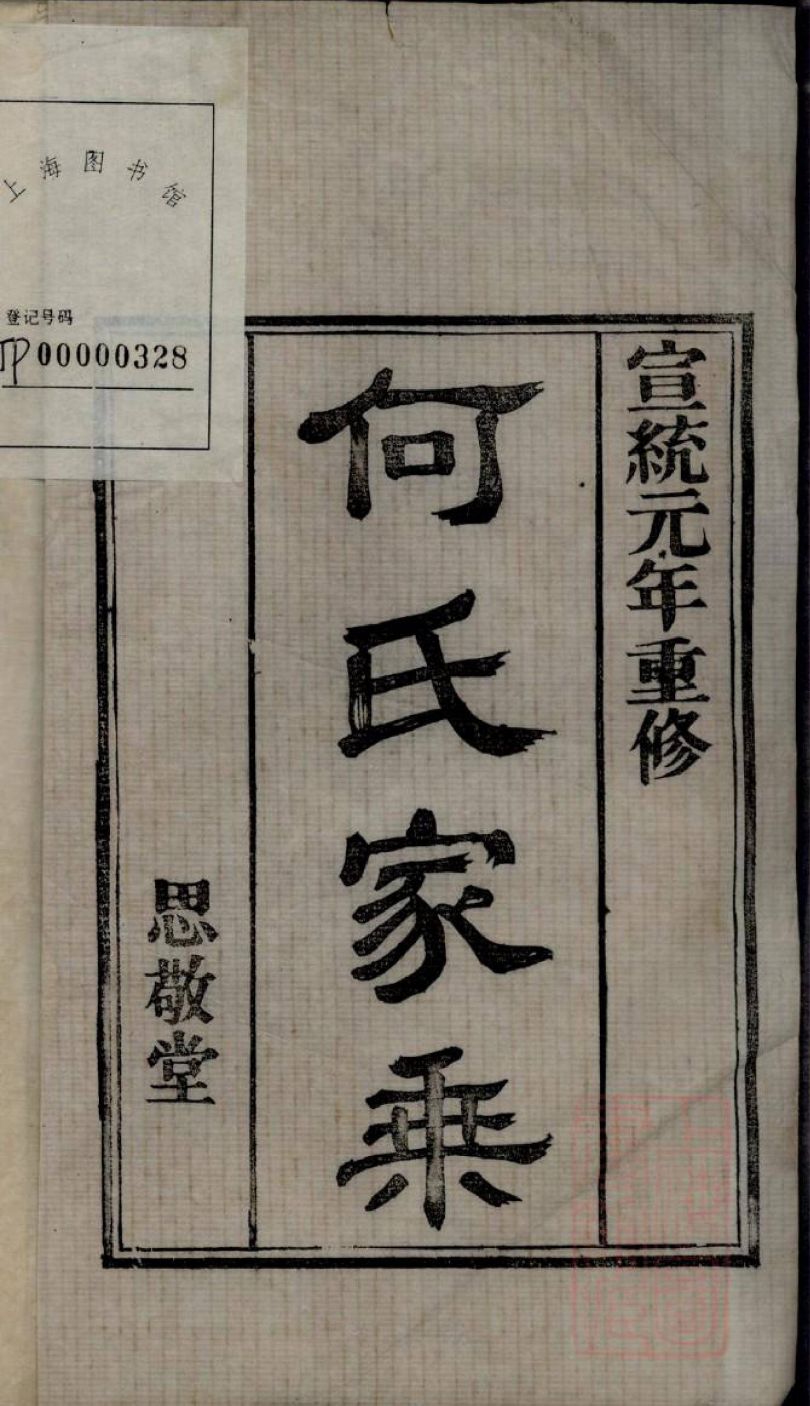 上海图书馆
登记号码
TP00000328
宣統元年重修
何氏家乘
思敬堂